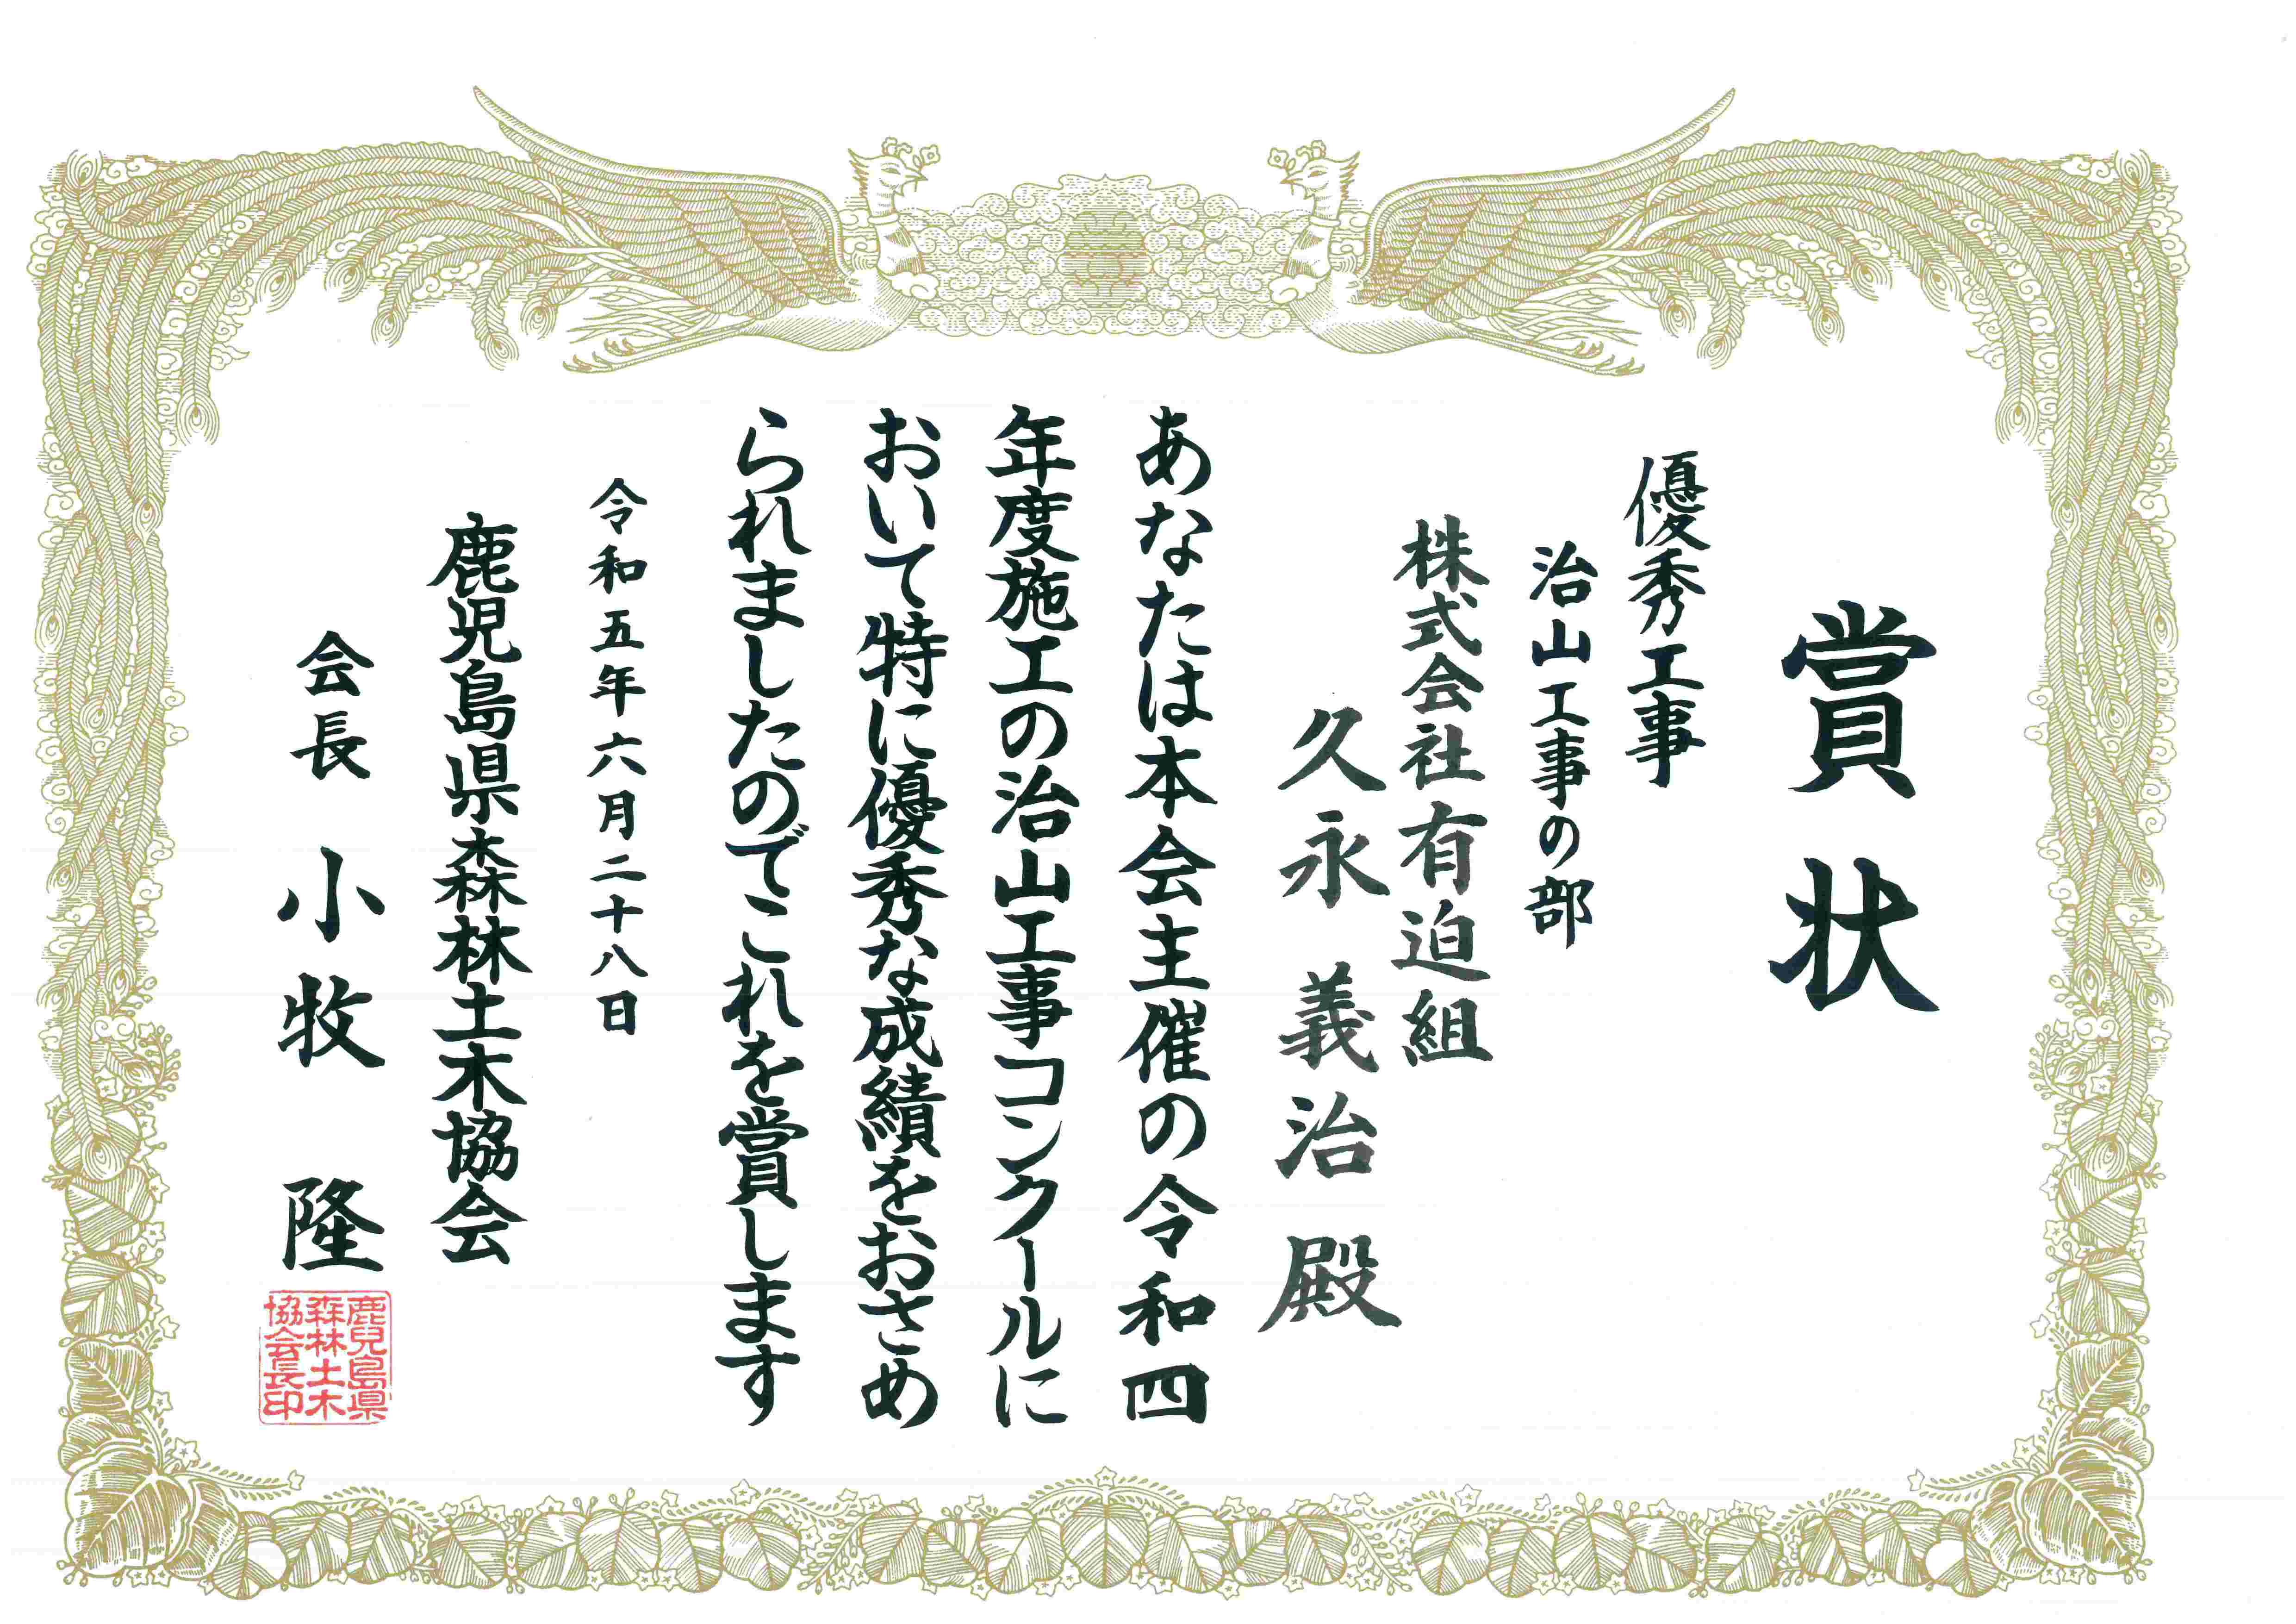 賞状
優秀工事
治山工事の部
株式会社有迫組
久永義治殿
あなたは本会主催の令和四
年度施工の治山工事コンクールに
おいて特に優秀な成績をおさめ
られましたのでこれを賞します
令和五年六月二十八日
鹿児島県森林土木協会
会長 小牧 隆
鹿児島県
森林土木
協会長印